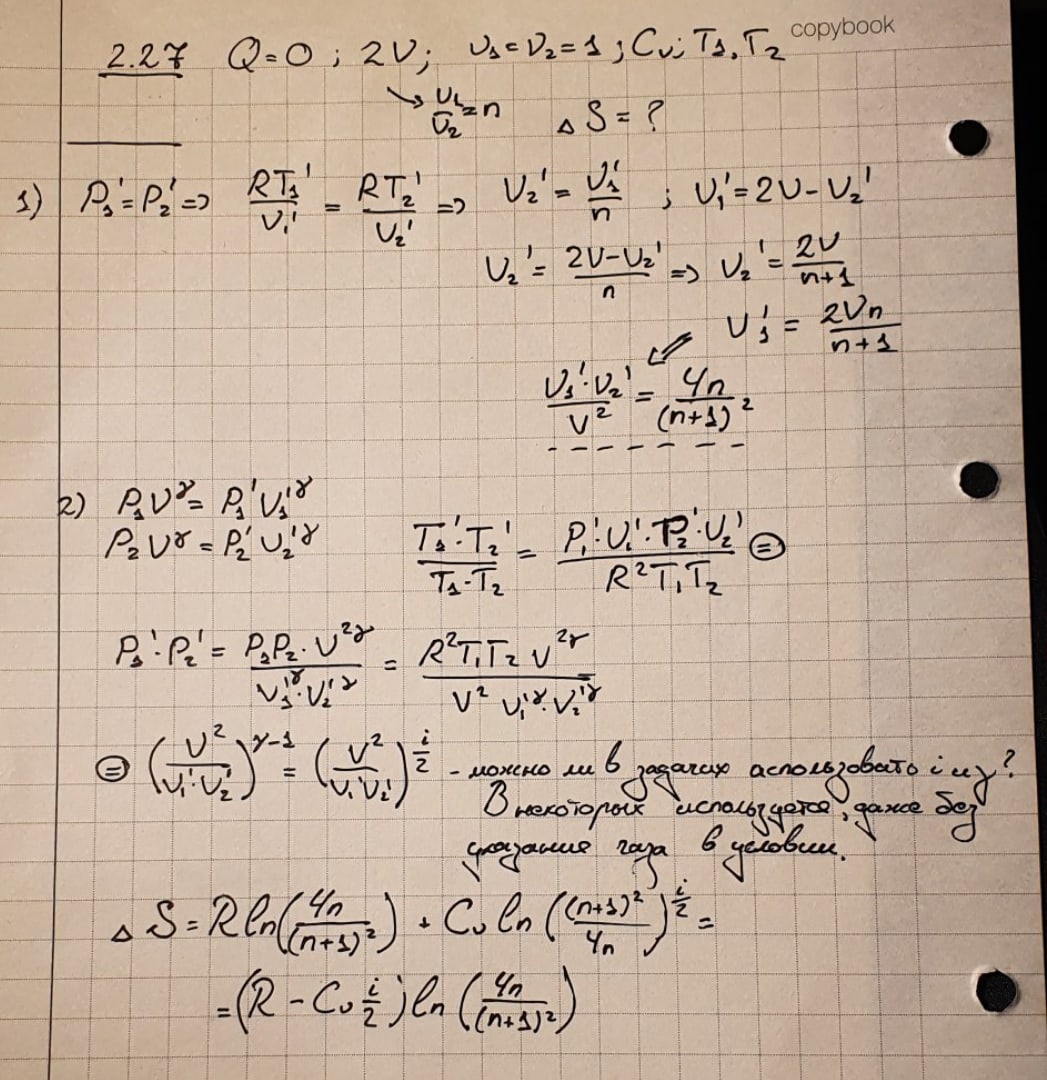 copybook
2.27 Q=0 ; 2V; υ₁=υ₂=1 ; Cᵥ; T₁, T₂
↘ V₁/V₂ = n   ΔS = ?
1) P₁' = P₂' => RT₁'/V₁' = RT₂'/V₂' => V₂' = V₁'/n ; V₁' = 2V - V₂'
V₂' = (2V-V₂')/n => V₂' = 2V/(n+1)
V₁' = 2Vn/(n+1)
(V₁'·V₂')/V² = 4n/(n+1)²
2) P₁V^γ = P₁'V₁'^γ
P₂V^γ = P₂'V₂'^γ   (T₁'·T₂')/(T₁·T₂) = (P₁'·V₁'·P₂'·V₂')/(R²T₁T₂) =
P₁'·P₂' = (P₁P₂·V^2γ)/(V₁'^γ·V₂'^γ) = (R²T₁T₂V^2γ)/(V²V₁'^γ·V₂'^γ)
= (V²/(V₁'·V₂'))^(γ-1) = (V²/(V₁'V₂'))^(i/2) - можно ли в задачах использовать i и γ?
В некоторых используется, даже без
указания газа в условии.
ΔS = R ln(4n/(n+1)²) + Cᵥ ln((n+1)²/4n)^(i/2) =
= (R - Cᵥ i/2) ln(4n/(n+1)²)